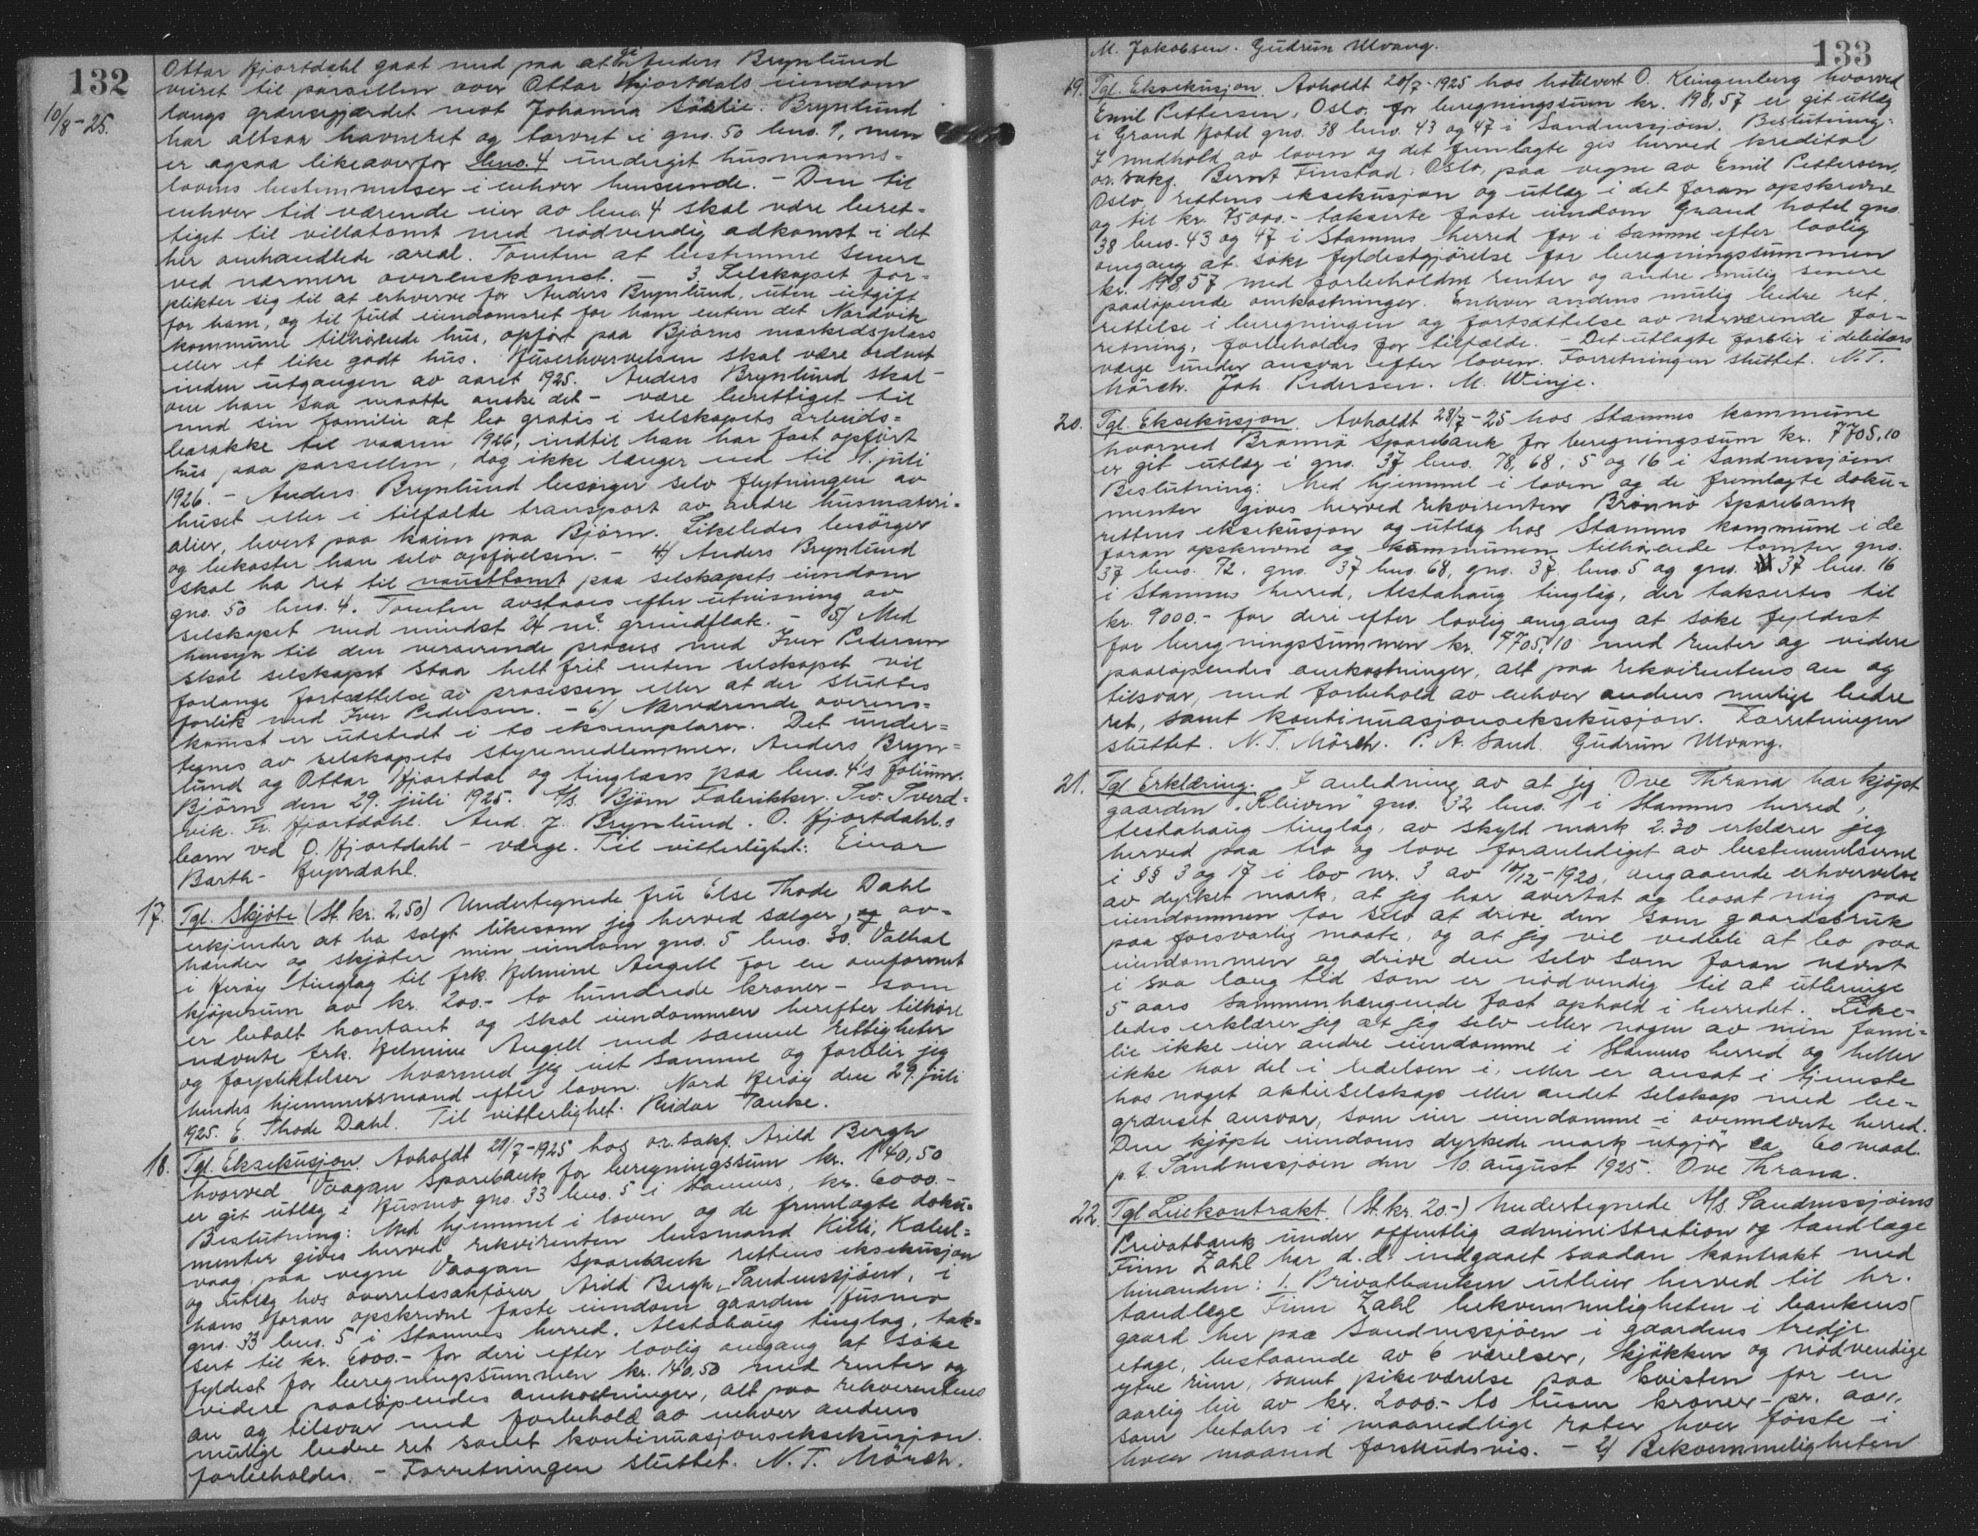 132
10/8-25.
Ottar Hjortdahl gaat med paa at gi Anders Brynlund
veiret til parsellen over Ottar Hjortdals eiendom
langs grænsegjærdet mot Johanna Sørlie. Brynlund
har altsaa havneret og torvret i gno. 50 bno. 1, men
er ogsaa likeoverfor bno. 4 undergit husmanns-
lovens bestemmelser i enhver henseende. - Den til
enhver tid værende eier av bno. 4 skal være beret-
tiget til villatomt med nødvendig adkomst i det
her omhandlede areal. Tomten at bestemme senere
ved nærmere overenskomst. - 3. Selskapet for-
plikter sig til at erhverve for Anders Brynlund, uten utgift
for ham, og til fuld eiendomsret for ham enten det Nordvik
kommune tilhørende hus, opført paa Bjørns markedsplass
eller et like godt hus. Huserhvervelsen skal være ordnet
inden utgangen av aaret 1925. Anders Brynlund skal -
om han saa maatte ønske det - være berettiget til
med sin familie at bo gratis i selskapets arbeids-
barakke til vaaren 1926, indtil han har faat opført
hus paa parsellen, dog ikke længer end til 1. juli
1926. - Anders Brynlund besørger selv flytningen av
huset eller i tilfælde transport av andre husmateri-
alier, levert paa kaien paa Bjørn. Likeledes besørger
og bekoster han selv opførelsen. - 4/ Anders Brynlund
skal ha ret til nausttomt paa selskapets eiendom
gno. 50 bno. 4. Tomten avstaaes efter utvisning av
selskapet med mindst 24 m². grundflate. - 5/ Med
hensyn til den verserende proces med Iver Pedersen
skal selskapet staa helt frit enten selskapet vil
forlange fortsættelse av prosessen eller at der sluttes
forlik med Iver Pedersen. - 6/ Nærværende overens-
komst er utstedt i to eksemplarer. Det under-
tegnes av selskapets styremedlemmer, Anders Bryn-
lund og Ottar Hjortdal og tinglæses paa bno. 4's folium.
Bjørn den 29. juli 1925. A/S. Bjørn Fabrikker. Tw. Tverd-
vik. Fr. Hjortdahl. And. J. Brynlund. O. Hjortdahl.s
barn ved O. Hjortdahl - værge. Til vitterlighet: Einar
Barth-
17. Tgl. Skjøte (St. kr. 2,50) Undertegnede fru Else Thode Dahl
erkjender at ha solgt likesom jeg herved sælger, og av-
hænder og skjøter min eiendom gno. 5 bno. 30. Valhal
i Herøy tinglag til frk. Helmine Angell for en omforenet
kjøpesum av kr. 200.- to hundrede kroner - som
er betalt kontant og skal eiendommen herefter tilhøre
nævnte frk. Helmine Angell med samme rettigheter
og forpliktelser hvormed jeg eiet samme og forblir jeg
hendes hjemmelsmand efter loven. Nord Herøy den 29. juli
1925. E. Thode Dahl. Til vitterlighet. Reidar Tanke.
18. Tgl. Eksekusjon. Avholdt 21/7-1925 hos or. sakf. Arild Bergh
hvorved Vaagan sparebank for beregningssum kr. 140,50
er git utlæg i Husmo gno. 33 bno. 5 i Stamnes, kr. 6000.-
Beslutning: Med hjemmel i loven og de fremlagte doku-
menter gives herved rekvirenten lensmand Killi, Kabel-
vaag, paa vegne Vaagan sparebank rettens eksekusjon
og utlæg hos overretssakfører Arild Bergh, Sandnessjøen, i
hans foran opskrevne faste eiendom gaarden Husmo
gno. 33 bno. 5 i Stamnes herred. Alstahaug tinglag, tak-
sert til kr. 6000.- for deri efter lovlig omgang at søke
fyldest for beregningssummen kr. 140,50 med renter og
videre paaløpendes omkostninger, alt paa rekvirentens
an og tilsvar med forbehold av enhver andens
mulige bedre ret samt kontinuasjonseksekusjon
forbeholdes. - Forretningen sluttet. N. T. Mörch.
133
M. Jakobsen. Gudrun Ulvang.
19. Tgl. Eksekusjon. Avholdt 20/7-1925 hos hotelvert O. Klingenberg hvorved
Emil Pettersen, Oslo, for beregningssum kr. 198,57 er git utlæg
i Grand Hotel gno. 38 bno. 43 og 47 i Sandnessjøen. Beslutning:
I medhold av loven og det fremlagte gis herved kreditor
or. sakf. Bernt Finstad, Oslo, paa vegne av Emil Pettersen,
Oslo, rettens eksekusjon og utlæg i det foran opskrevne
og til kr. 75000.- takserte faste eiendom Grand hotel gno.
38 bno. 43 og 47 i Stamnes herred for i samme efter lovlig
omgang at søke fyldestgjørelse for beregningssummen
kr. 198 57 med forbeholdne renter og andre mulig senere
paaløpende omkostninger. Enhver andens mulig bedre ret,
rettelse i beregningen og fortsættelse av nærværende for-
retning, forbeholdes for tilfælde. - Det utlagte forblir i debitors
værge under ansvar efter loven. Forretningen sluttet. N. T.
Mörch. Joh. Pedersen. M. Winje.
20. Tgl. Eksekusjon. Avholdt 28/7-25 hos Stamnes kommune
hvorved Brønnø Sparebank for beregningssum kr. 7705,10
er git utlæg i gno. 37 bno. 78, 68, 5 og 16 i Sandnessjøen
Beslutning: Med hjemmel i loven og de fremlagte doku-
menter gives herved rekvirenten Brønnø sparebank
rettens eksekusjon og utlæg hos Stamnes kommune i de
foran opskrevne og kommunen tilhørende tomter gno.
37 bno. 72. gno. 37 bno. 68, gno. 37 bno. 5 og gno. 37 bno. 16
i Stamnes herred, Alstahaug tinglag, der taksertes til
kr. 9000.- for deri efter lovlig omgang at søke fyldest
for beregningssummen kr. 7705,10 med renter og videre
paaløpendes omkostninger, alt paa rekvirentens an og
tilsvar, med forbehold av enhver andens mulige bedre
ret, samt kontinuasjonseksekusjon. Forretningen
sluttet. N. T. Mörch. P. A. Sand. Gudrun Ulvang.
21. Tgl. Erklæring. I anledning av at jeg Ove Thrana har kjøpt
gaarden "Kleiven" gno. 32 bno. 1 i Stamnes herred,
Alstahaug tinglag, av skyld mark 2.30 erklærer jeg
herved paa tro og love foranlediget av bestemmelserne
i §§ 3 og 17 i lov nr. 3 av 10/12-1920, angaaende erhvervelse
av dyrket mark, at jeg har overtat og bosat mig paa
eiendommen for selv at drive den som gaardsbruk
paa forsvarlig maate, og at jeg vil vedbli at bo paa
eiendommen og drive den selv som foran nævnt
i saa lang tid som er nødvendig til at utbringe
5 aars sammenhængende fast ophold i herredet. Like-
ledes erklærer jeg at jeg selv eller nogen av min fami-
lie ikke eier andre eiendomme i Stamnes herred og heller
ikke har del i ledelsen i, eller er ansat i tjeneste
hos noget aktieselskap eller andet selskap med be-
grænset ansvar, som eier eiendomme i ovennævnte herred.
Den kjøpte eiendoms dyrkede mark utgjør ca 60 maal.
p. t. Sandnessjøen den 10. august 1925. Ove Thrana.
22. Tgl. Leiekontrakt. (St. kr. 20.-) Undertegnede A/S. Sandnessjøens
Privatbank under offentlig administration og tandlæge
Finn Zahl har d. d. indgaaet saadan kontrakt med
hinanden: 1. Privatbanken utleier herved til hr.
tandlæge Finn Zahl bekvemmeligheten i bankens
gaard her paa Sandnessjøen i gaardens tredje
etage, bestaaende av 6 værelser, kjøkken og nødvendige
ytre rum, samt pikeværelse paa kvisten for en
aarlig leie av kr. 2000.- to tusen kroner - pr. aar,
som betales i maanedlige rater hver første i
hver maaned forskudsvis. - 2/ Bekvemmeligheten